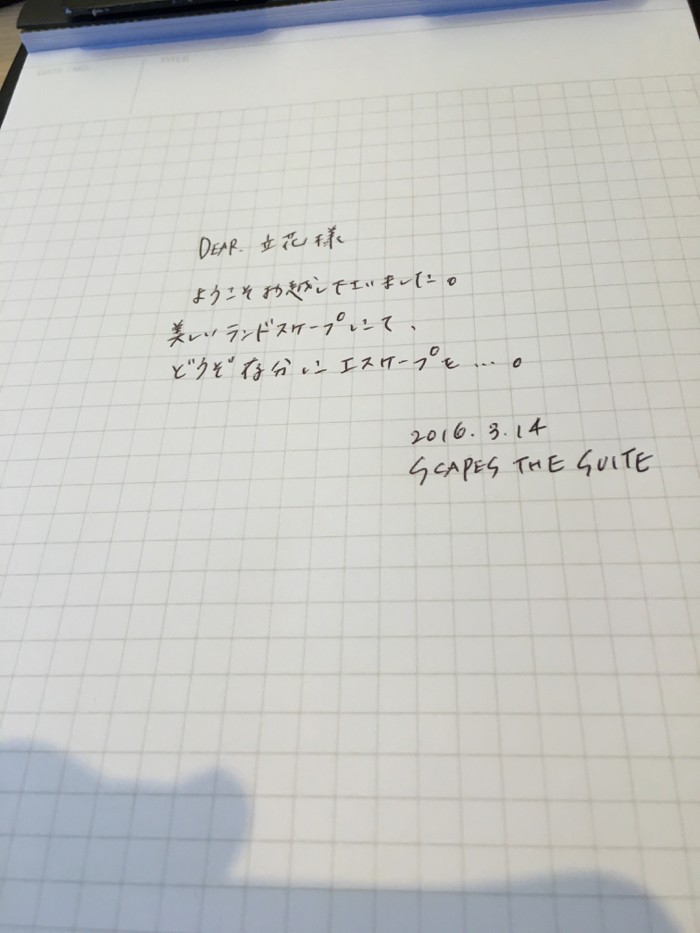 DATE・NO.
TITLE
DEAR. 立花様
ようこそお越し下さいました。
美しいランドスケープにて、
どうぞ存分にエスケープを…。
2016. 3. 14
SCAPES THE SUITE